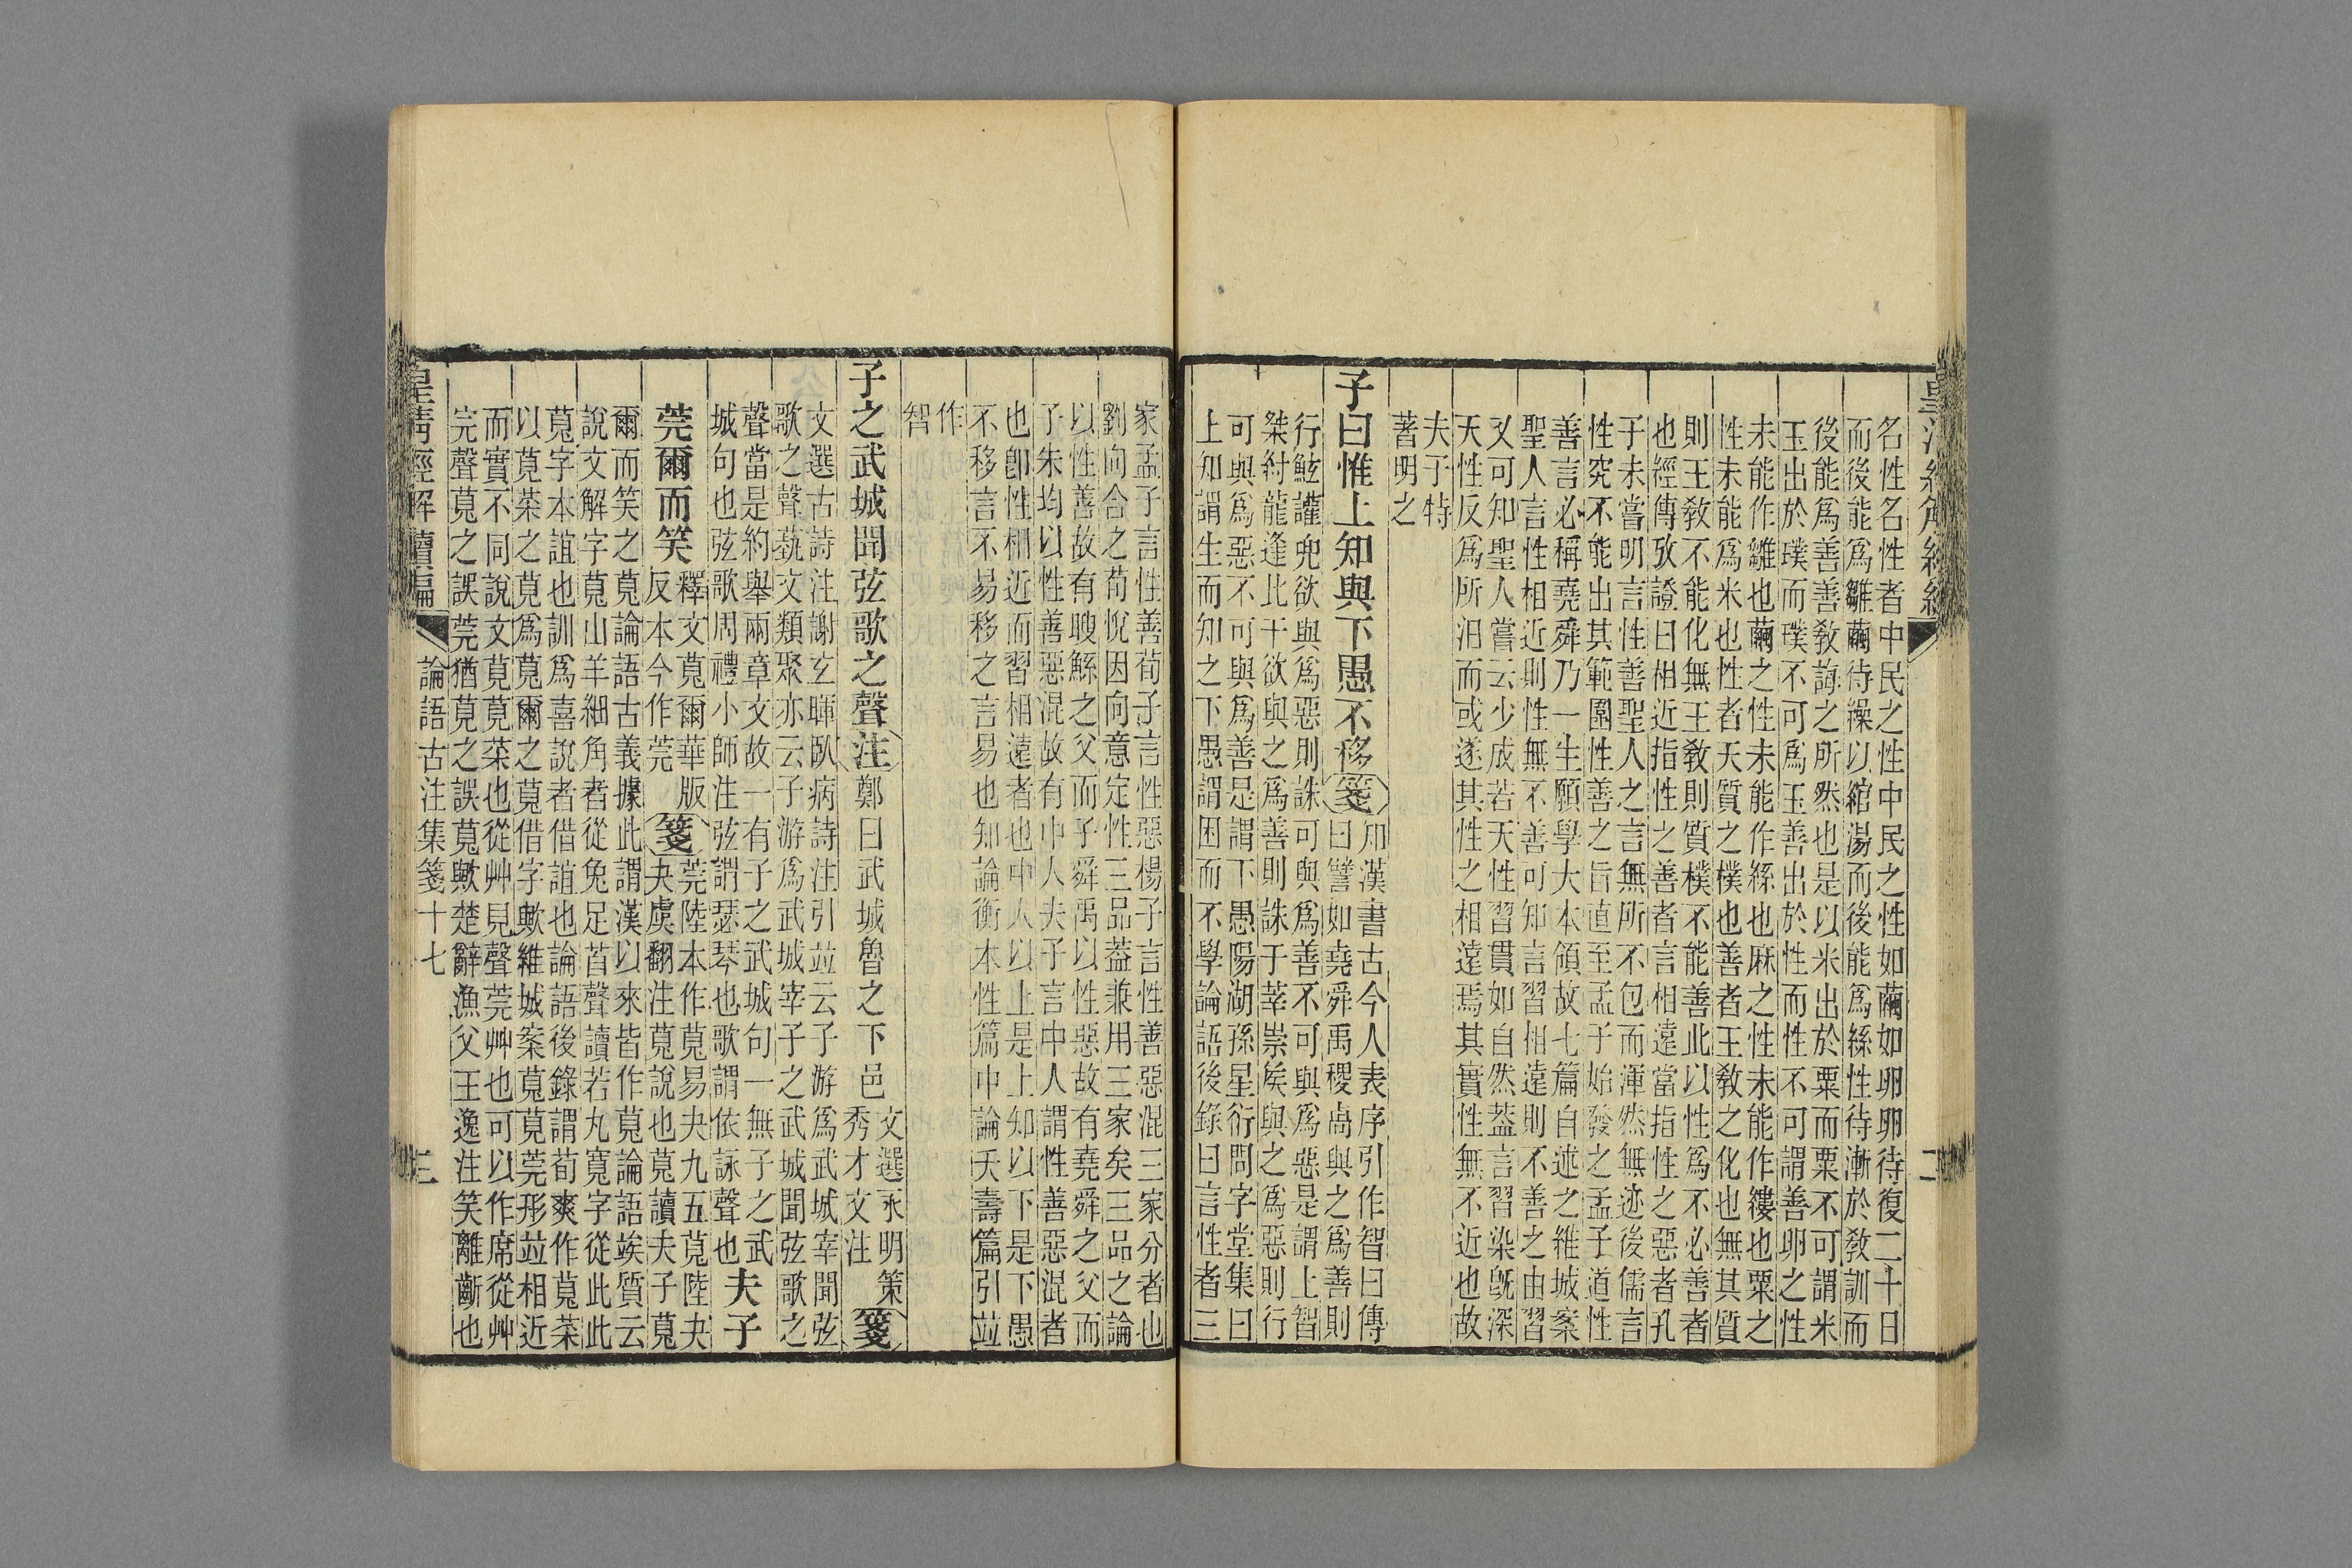 名性名性者中民之性中民之性如繭如卵卵待復二十日
而後能爲雛繭待繰以綰湯而後能爲絲性待漸於敎訓而
後能爲善善敎誨之所然也是以米出於粟而粟不可謂米
玉出於璞而璞不可爲玉善出於性而性不可謂善卵之性
未能作雛也繭之性未能作絲也麻之性未能作縷也粟之
性未能爲米也性者天質之樸也善者王敎之化也無其質
則王敎不能化無王敎則質樸不能善此以性爲不必善者
也經傳攷證曰相近指性之善者言相遠當指性之惡者孔
子未嘗明言性善聖人之言無所不包而渾然無迹後儒言
性究不能出其範圍性善之旨直至孟子始發之孟子道性
善言必稱堯舜乃一生願學大本領故七篇自述之維城案
聖人言性相近則性無不善可知言習相遠則不善之由習
又可知聖人嘗云少成若天性習貫如自然蓋言習染旣深
天性反爲所汨而或遂其性之相遠焉其實性無不近也故
夫子特
著明之
子曰惟上知與下愚不移箋
知漢書古今人表序引作智曰傳
曰譬如堯舜禹稷卨與之爲善則
行鮌讙兜欲與爲惡則誅可與爲善不可與爲惡是謂上智
桀紂龍逢比干欲與之爲善則誅于莘崇矦與之爲惡則行
可與爲惡不可與爲善是謂下愚陽湖孫星衍問字堂集曰
上知謂生而知之下愚謂困而不學論語後錄曰言性者三
家孟子言性善荀子言性惡楊子言性善惡混三家分者也
劉向合之荀悅因向意定性三品蓋兼用三家矣三品之論
以性善故有瞍鯀之父而子舜禹以性惡故有堯舜之父而
子朱均以性善惡混故有中人夫子言中人謂性善惡混者
也卽性相近而習相遠者也中人以上是上知以下是下愚
不移言不易移之言易也知論衡本性篇中論夭壽篇引竝
作
智
子之武城聞弦歌之聲注鄭曰武城魯之下邑
文選永明策
秀才文注
箋
文選古詩注謝玄暉臥病詩注引竝云子游爲武城宰聞弦
歌之聲蓺文類聚亦云子游爲武城宰子之武城聞弦歌之
聲當是約舉兩章文故一有子之武城句一無子之武
城句也弦歌周禮小師注弦謂瑟琴也歌謂依詠聲也
夫子
莞爾而笑
釋文莧爾華版
反本今作莞
箋
莞陸本作莧易夬九五莧陸夬
夬虞翻注莧說也莧讀夫子莧
爾而笑之莧論語古義據此謂漢以來皆作莧論語竢質云
說文解字莧山羊細角者從兔足苜聲讀若丸寬字從此此
莧字本誼也訓爲喜說者借誼也論語後錄謂荀爽作莧菜
以莧菜之莧爲莧爾之莧借字歟維城案莧莧莞形竝相近
而實不同說文莧莧菜也從艸見聲莞艸也可以作席從艸
完聲莧之誤莞猶莧之誤莧歟楚辭漁父王逸注笑離齗也
皇淸經解續編
論語古注集箋十七
三